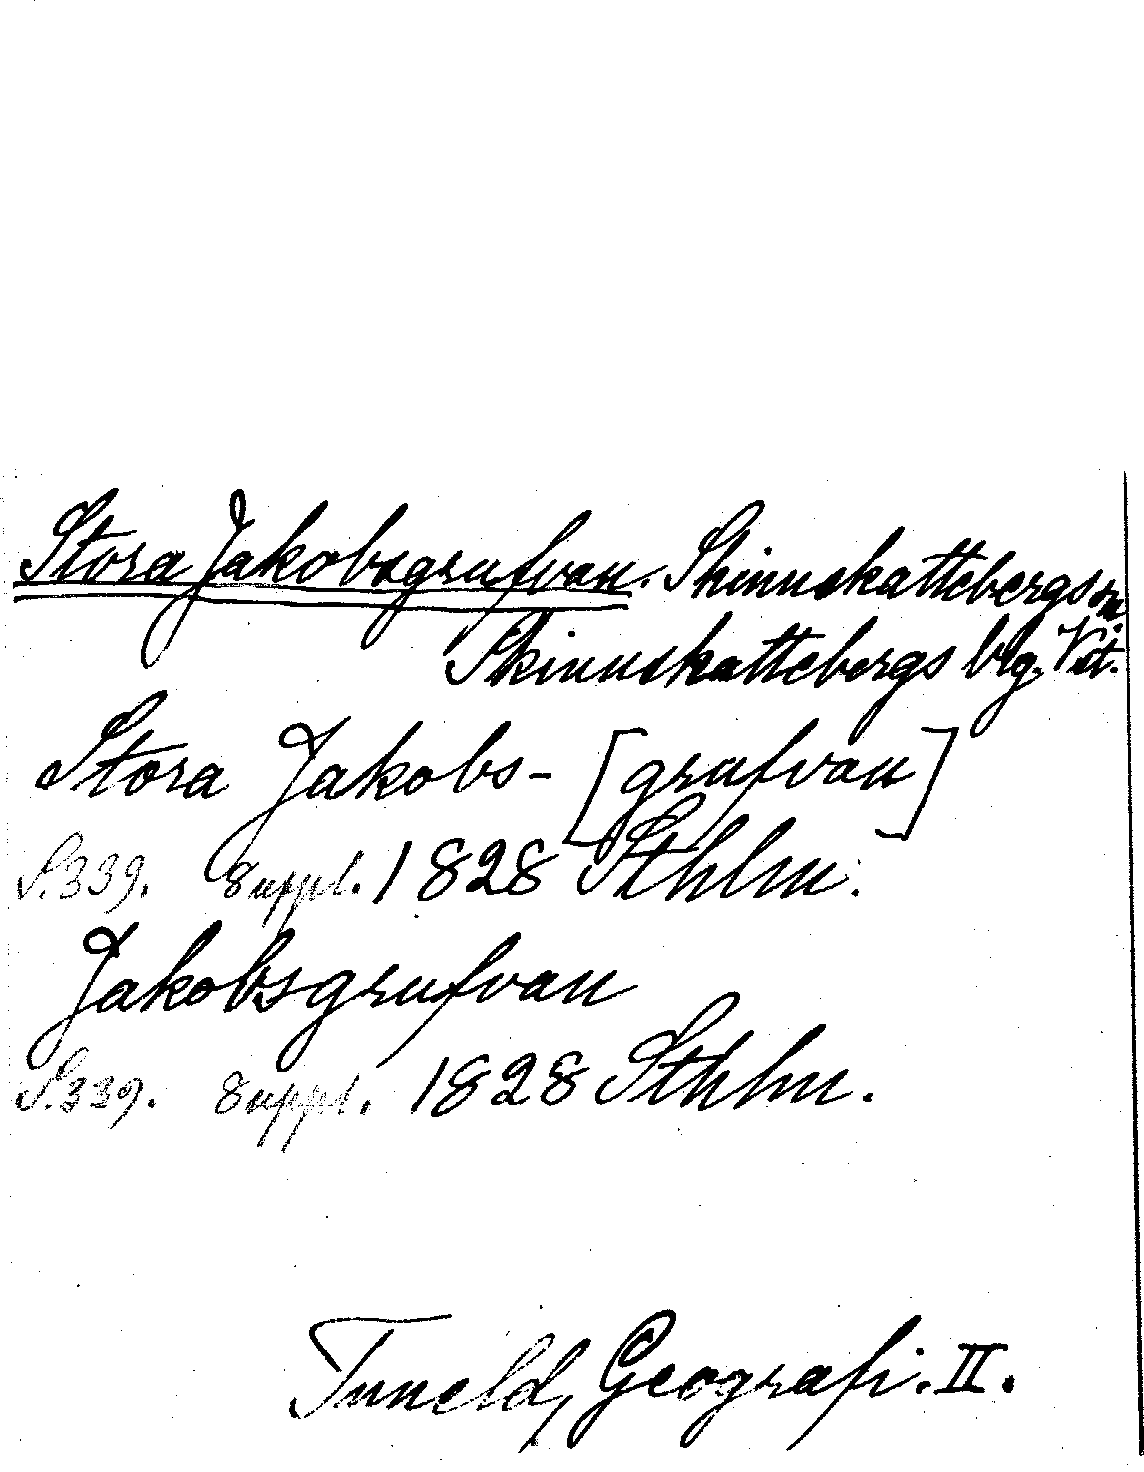 Stora Jakobsgrufvan. Skinnskattebergs sn.
Skinnskattebergs blg. Vstm.
Stora Jakobs- [grufvan]
S. 339. Suppl. 1828 Sthlm.
Jakobsgrufvan
S. 339. Suppl. 1828 Sthlm.
Tuneld, Geografi. II.